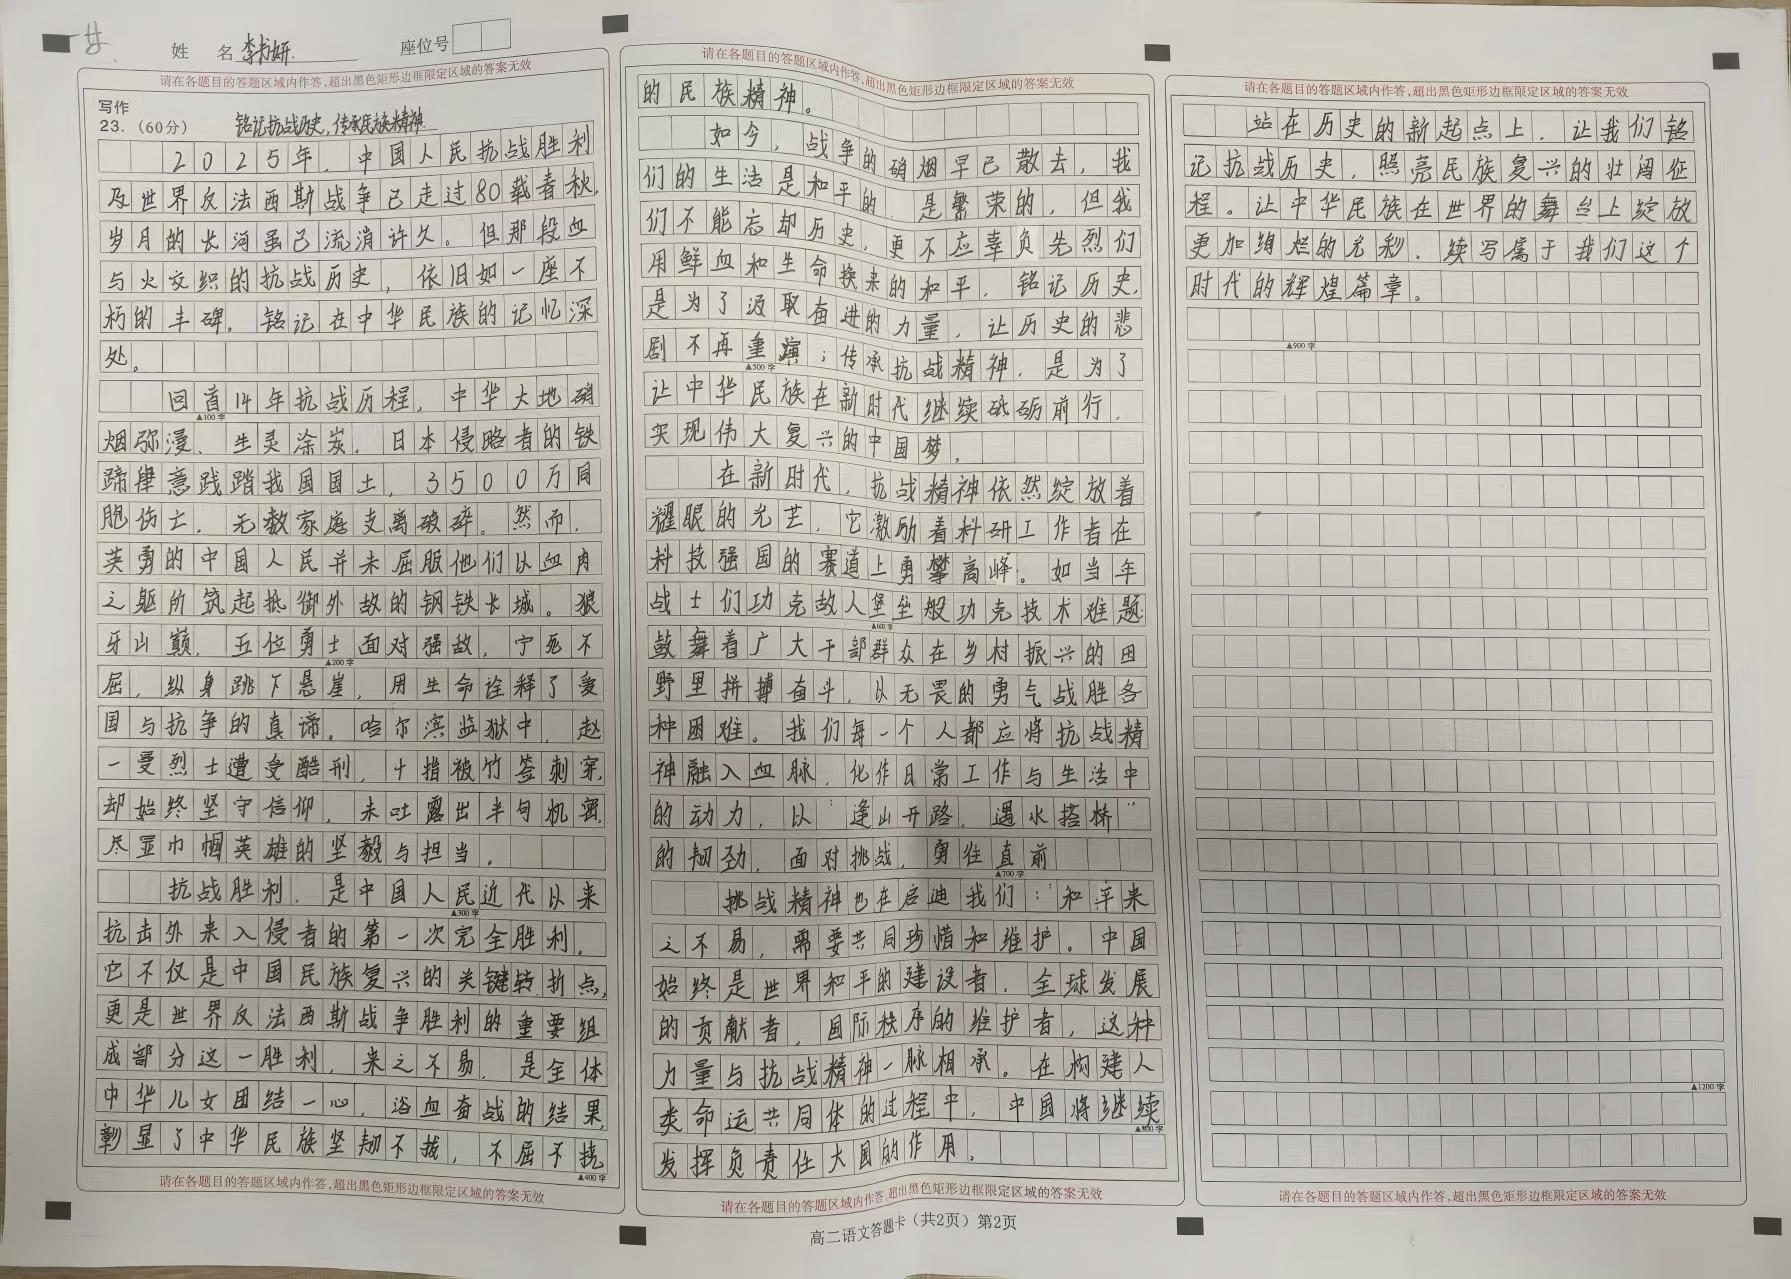 姓 名 李书妍 座位号
请在各题目的答题区域内作答,超出黑色矩形边框限定区域的答案无效
写作
23.(60分) 铭记抗战历史,传承民族精神
2025年,中国人民抗战胜利
及世界反法西斯战争已走过80载春秋,
岁月的长河虽已流淌许久。但那段血
与火交织的抗战历史,依旧如一座不
朽的丰碑。铭记在中华民族的记忆深
处。
回首14年抗战历程,中华大地硝
▲100字
烟弥漫、生灵涂炭。日本侵略者的铁
蹄肆意践踏我国国土,3500万同
胞伤亡,无数家庭支离破碎。然而,
英勇的中国人民并未屈服他们以血肉
之躯所筑起抵御外敌的钢铁长城。狼
牙山巅,五位勇士面对强敌,宁死不
▲200字
屈,纵身跳下悬崖,用生命诠释了爱
国与抗争的真谛。哈尔滨监狱中,赵
一曼烈士遭受酷刑,十指被竹签刺穿,
却始终坚守信仰,未吐露出半句机密,
尽显巾帼英雄的坚毅与担当。
抗战胜利,是中国人民近代以来
▲300字
抗击外来入侵者的第一次完全胜利。
它不仅是中国民族复兴的关键转折点,
更是世界反法西斯战争胜利的重要组
成部分这一胜利,来之不易,是全体
中华儿女团结一心,浴血奋战的结果,
彰显了中华民族坚韧不拔,不屈不挠
▲400字
请在各题目的答题区域内作答,超出黑色矩形边框限定区域的答案无效
请在各题目的答题区域内作答,超出黑色矩形边框限定区域的答案无效
的民族精神。
如今,战争的硝烟早已散去,我
们的生活是和平的,是繁荣的,但我
们不能忘却历史,更不应辜负先烈们
用鲜血和生命换来的和平,铭记历史,
是为了汲取奋进的力量,让历史的悲
剧不再重演;传承抗战精神,是为了
▲500字
让中华民族在新时代继续砥砺前行,
实现伟大复兴的中国梦。
在新时代,抗战精神依然绽放着
耀眼的光芒,它激励着科研工作者在
科技强国的赛道上勇攀高峰。如当年
战士们功克敌人堡垒般功克技术难题
▲600字
鼓舞着广大干部群众在乡村振兴的田
野里拼搏奋斗,以无畏的勇气战胜各
种困难。我们每一个人都应将抗战精
神融入血脉,化作日常工作与生活中
的动力,以"逢山开路,遇水搭桥"
的韧劲,面对挑战,勇往直前
▲700字
挑战精神也在启迪我们:和平来
之不易,需要共同珍惜和维护。中国
始终是世界和平的建设者,全球发展
的贡献者,国际秩序的维护者,这种
力量与抗战精神一脉相承。在构建人
类命运共同体的过程中,中国将继续
▲800字
发挥负责任大国的作用,
请在各题目的答题区域内作答,超出黑色矩形边框限定区域的答案无效
高二语文答题卡(共2页)第2页
请在各题目的答题区域内作答,超出黑色矩形边框限定区域的答案无效
站在历史的新起点上,让我们铭
记抗战历史,照亮民族复兴的壮阔征
程。让中华民族在世界的舞台上绽放
更加绚烂的光彩,续写属于我们这个
时代的辉煌篇章。
▲900字
▲1200字
请在各题目的答题区域内作答,超出黑色矩形边框限定区域的答案无效